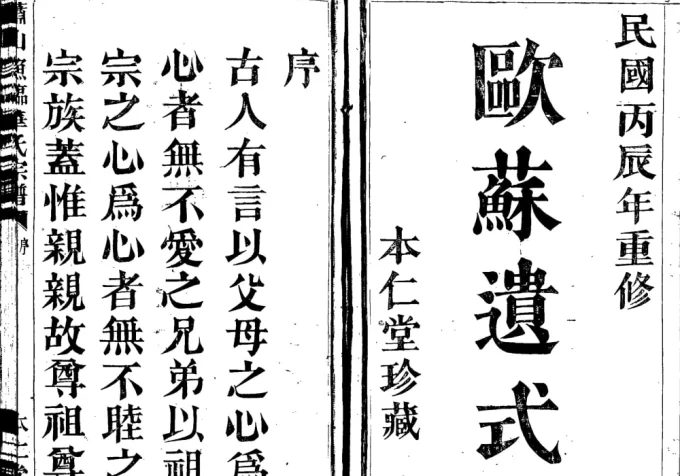 民國丙辰年重修
歐蘇遺式
本仁堂珍藏
序
古人有言以父母之心爲
心者無不愛之兄弟以祖
宗之心爲心者無不睦之
宗族蓋惟親親故尊祖尊
蕭山漁臨華氏宗譜
序
本仁堂